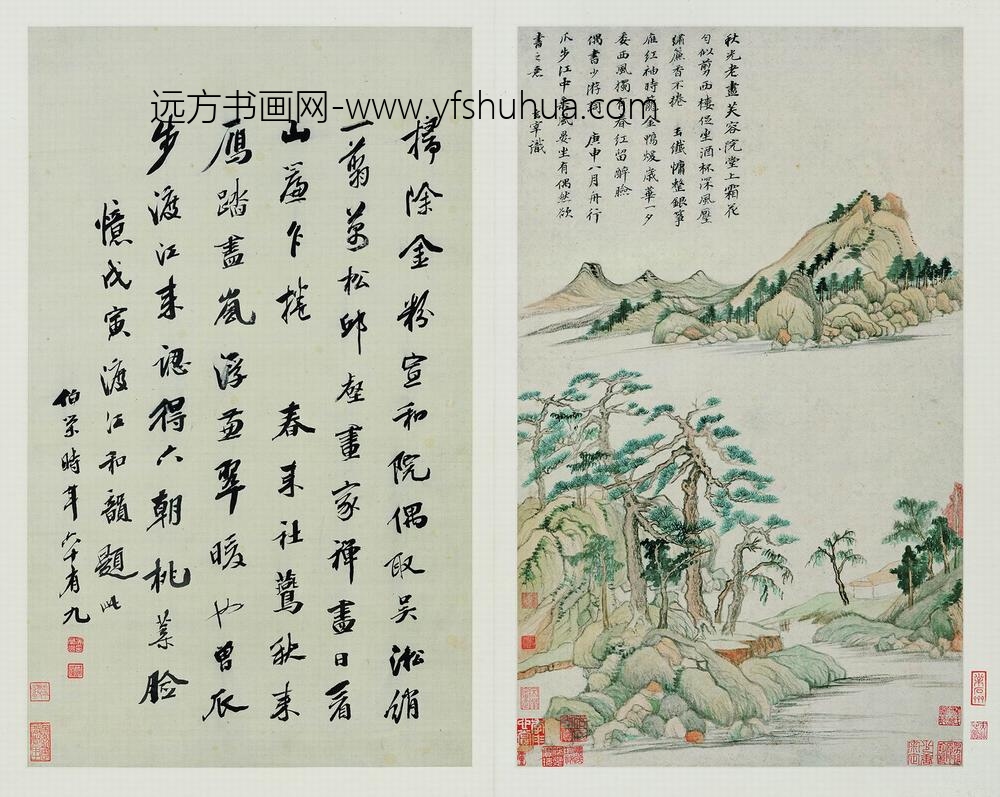 远方书画网-www.yfshuhua.com
秋光老盡芙容院堂上霜花
勻似剪西樓促坐酒杯深風壓
繡簾香不捲 玉纖慵整銀箏
雁紅袖時籠金鴨煖歲華一夕
委西風獨有春紅留醉臉
偶書少游詞 庚申八月舟行
瓜步江中乘風晏坐有偶然欲
書之意 玄宰識
掃除金粉宣和院偶取吳淞綃
一翦萬松邱壑畫家禪晝日看
山簾乍捲 春來社鷰秋來
鴈踏盡嵐浮翠暖也曾瓜
步渡江來認得六朝桃葉臉
憶戊寅渡江和韻題此
伯榮時年六十有九